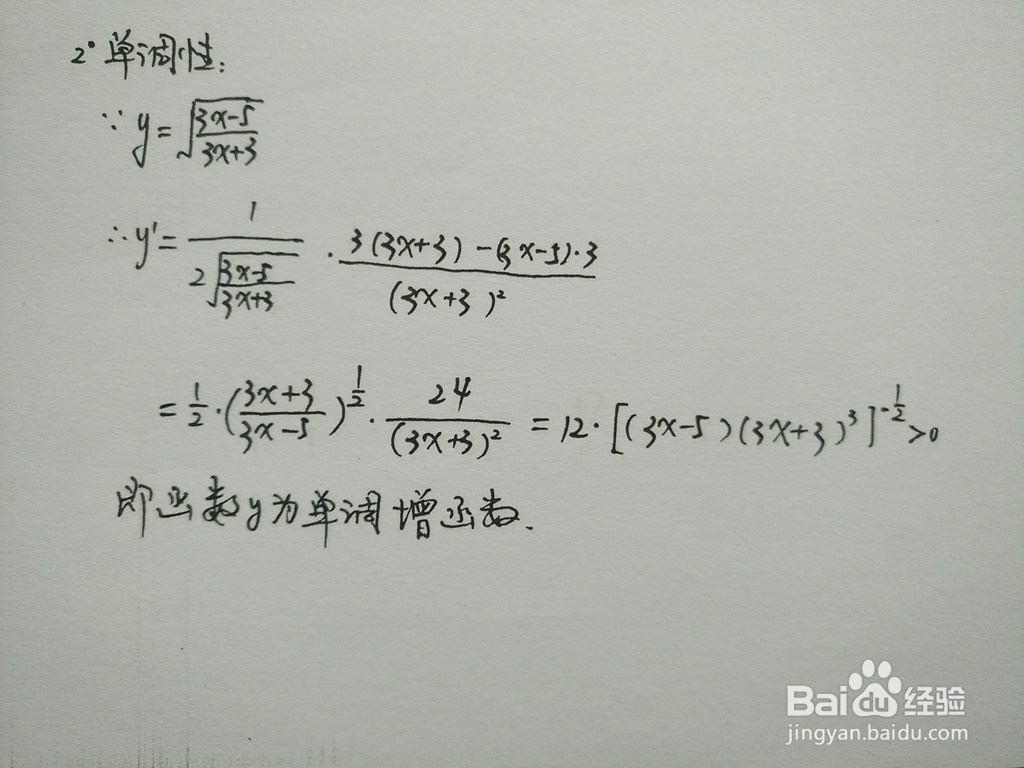 2° 单调性:
∵ y = √((3x-5)/(3x+3))
∴ y' = 1/(2√((3x-5)/(3x+3))) · (3(3x+3) - (3x-5)·3)/((3x+3)²)
= 1/2 · ((3x+3)/(3x-5))^(1/2) · 24/((3x+3)²) = 12 · [(3x-5)(3x+3)³]^(-1/2) >0
即函数y为单调增函数.
Baidu 经验
jingyan.baidu.com